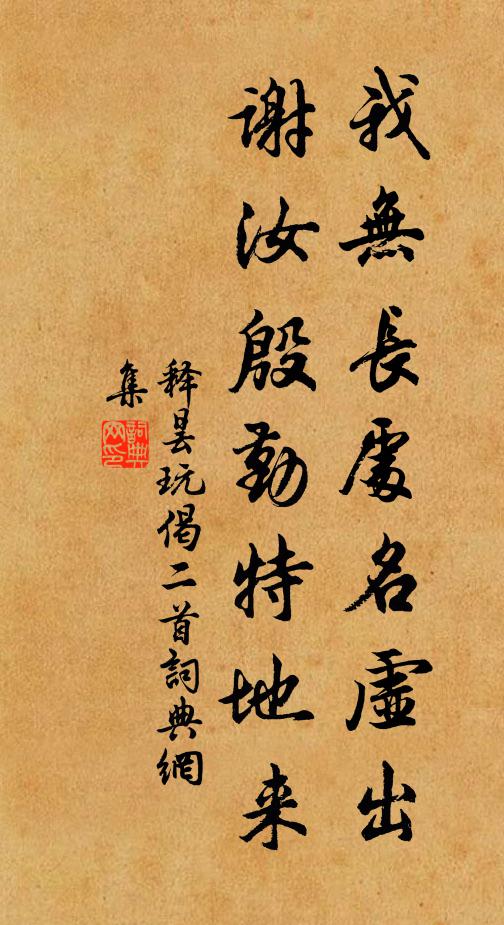 我無長處名虛出
謝汝殷勤特地来
释昙玩偈二首詞典網
集
詞典网印